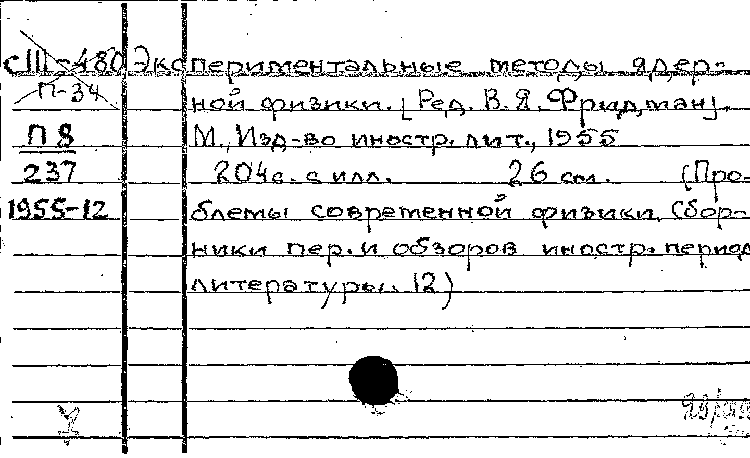 сIII-480 Экспериментальные методы ядер-
П-34 ной физики. [Ред. В. Я. Фридман].
П 8 М., Изд-во иностр. лит., 1955
237 204с. с илл. 26 см. (Про-
1955-12 блемы современной физики. Сбор-
ники пер. и обзоров иностр. период
литературы. 12)